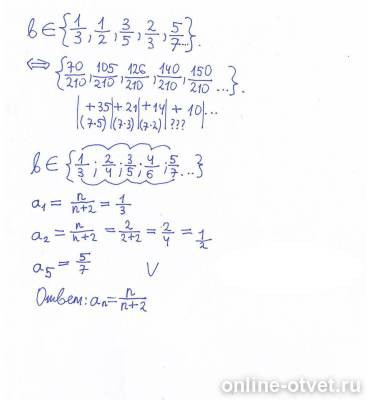 b ∈ {1/3, 1/2, 3/5, 2/3, 5/7...}.
⇔ {70/210, 105/210, 126/210, 140/210, 150/210 ...}.
|+35|+21|+14|+10|...
|(7·5)|(7·3)|(7·2)|???
b ∈ {1/3; 2/4; 3/5; 4/6; 5/7...}
a₁ = n/n+2 = 1/3
a₂ = n/n+2 = 2/2+2 = 2/4 = 1/2
a₅ = 5/7 V
Ответ: aₙ = n/n+2
online-otvet.ru